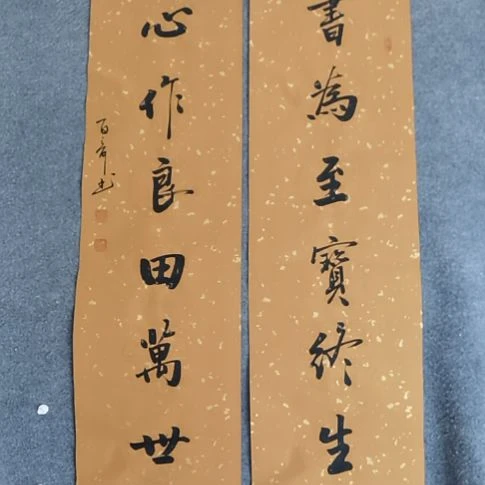 書為至寶終生
心作良田萬世